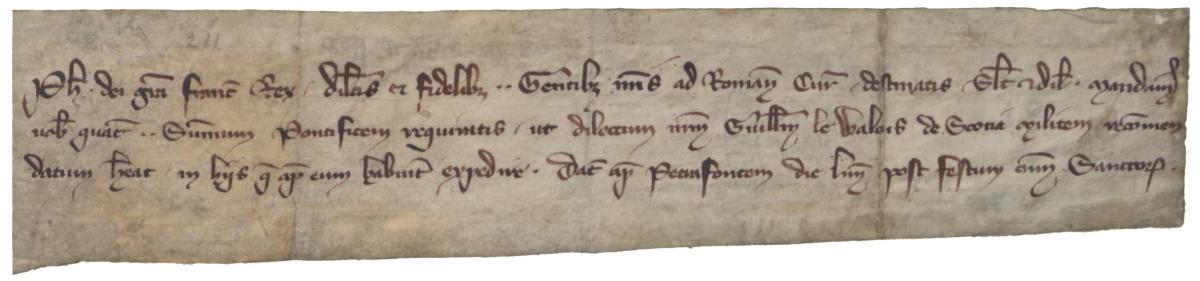 211
Ph. dei gra franc Rex, dilcis et fidelibz .. Gentibz nris ad Romanam Cur destinatis, Salt et dil. Mandamus
vob quat .. Summum Pontificem requiratis, ut dilectum nrm Guillm le Walois de Scotia militem, recomen
datum heat, in hijs q ap eum habuit expedire. Dat ap Petrafontem die lun post festum omm Sanctor.